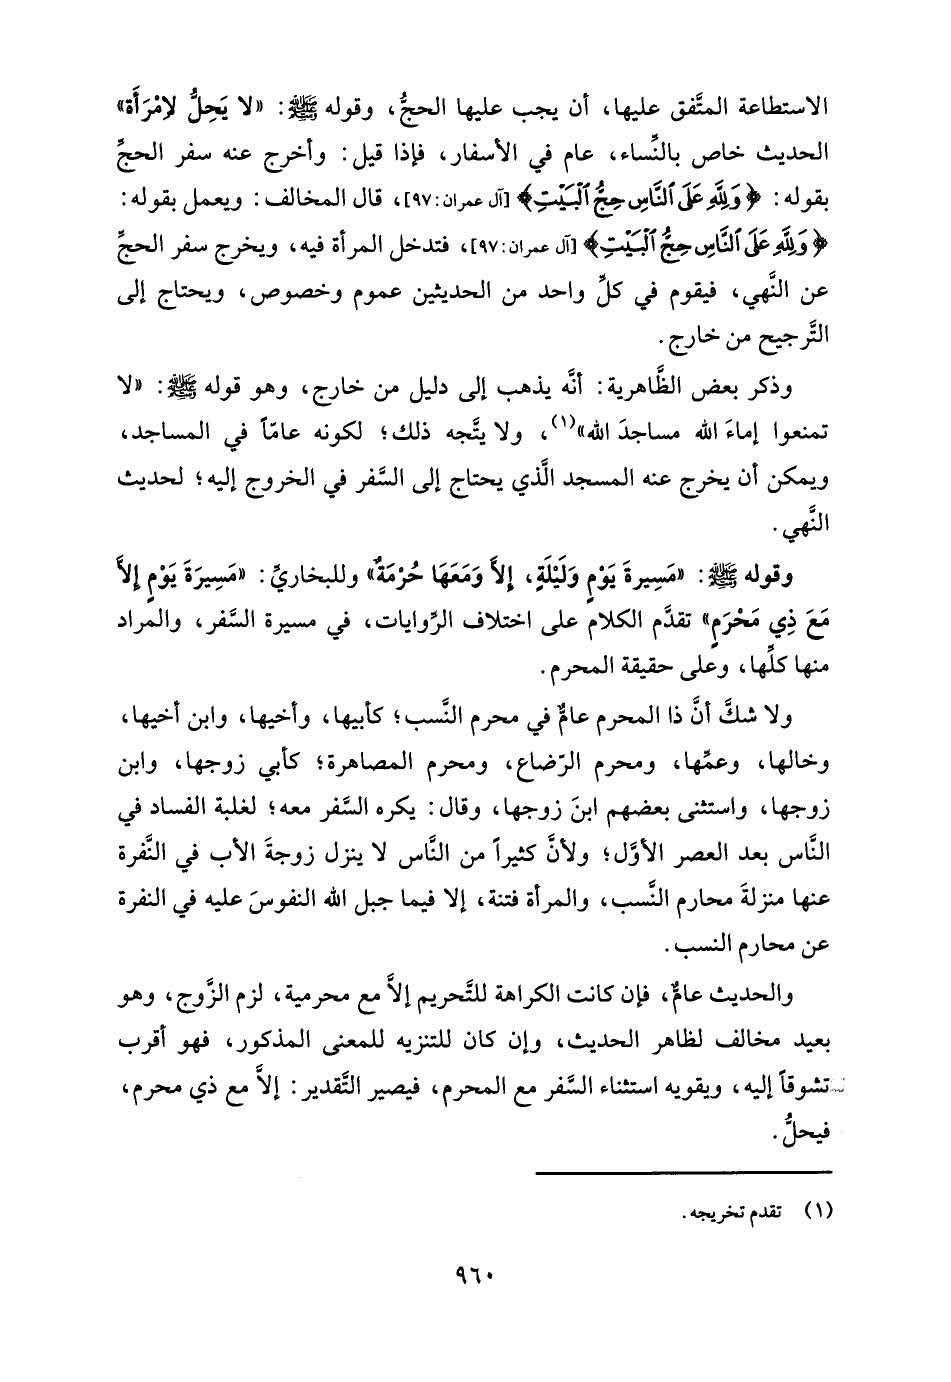 الاستطاعة المتَّفق عليها، أن يجب عليها الحجُّ، وقوله ﷺ: «لا يَحِلُّ لإمْرَأَة»
الحديث خاص بالنِّساء، عام في الأسفار، فإذا قيل: وأخرج عنه سفر الحجِّ
بقوله: ﴿وَلِلَّهِ عَلَى ٱلنَّاسِ حِجُّ ٱلْبَيْتِ﴾ [آل عمران: ٩٧]، قال المخالف: ويعمل بقوله:
﴿وَلِلَّهِ عَلَى ٱلنَّاسِ حِجُّ ٱلْبَيْتِ﴾ [آل عمران: ٩٧]، فتدخل المرأة فيه، ويخرج سفر الحجِّ
عن النَّهي، فيقوم في كلِّ واحد من الحديثين عموم وخصوص، ويحتاج إلى
التَّرجيح من خارج.
وذكر بعض الظَّاهرية: أنَّه يذهب إلى دليل من خارج، وهو قوله ﷺ: «لا
تمنعوا إماءَ الله مساجدَ الله»(١)، ولا يتَّجه ذلك؛ لكونه عامّاً في المساجد،
ويمكن أن يخرج عنه المسجد الَّذي يحتاج إلى السَّفر في الخروج إليه؛ لحديث
النَّهي.
وقوله ﷺ: «مَسِيرةَ يَوْمٍ وَلَيْلَةٍ، إلاَّ وَمَعَهَا حُرْمَةٌ» وللبخاريِّ: «مَسِيرَةَ يَوْمٍ إلاَّ
مَعَ ذِي مَحْرَمٍ» تقدَّم الكلام على اختلاف الرِّوايات، في مسيرة السَّفر، والمراد
منها كلِّها، وعلى حقيقة المحرم.
ولا شكَّ أنَّ ذا المحرم عامٌّ في محرم النَّسب؛ كأبيها، وأخيها، وابن أخيها،
وخالها، وعمِّها، ومحرم الرّضاع، ومحرم المصاهرة؛ كأبي زوجها، وابن
زوجها، واستثنى بعضهم ابنَ زوجها، وقال: يكره السَّفر معه؛ لغلبة الفساد في
النَّاس بعد العصر الأوَّل؛ ولأنَّ كثيراً من النَّاس لا ينزل زوجةَ الأب في النَّفرة
عنها منزلةَ محارم النَّسب، والمرأة فتنة، إلا فيما جبل الله النفوسَ عليه في النفرة
عن محارم النسب.
والحديث عامٌّ، فإن كانت الكراهة للتَّحريم إلاَّ مع محرمية، لزم الزَّوج، وهو
بعيد مخالف لظاهر الحديث، وإن كان للتنزيه للمعنى المذكور، فهو أقرب
تشوقاً إليه، ويقويه استثناء السَّفر مع المحرم، فيصير التَّقدير: إلاَّ مع ذي محرم،
فيحلُّ.
(١) تقدم تخريجه.
٩٦٠